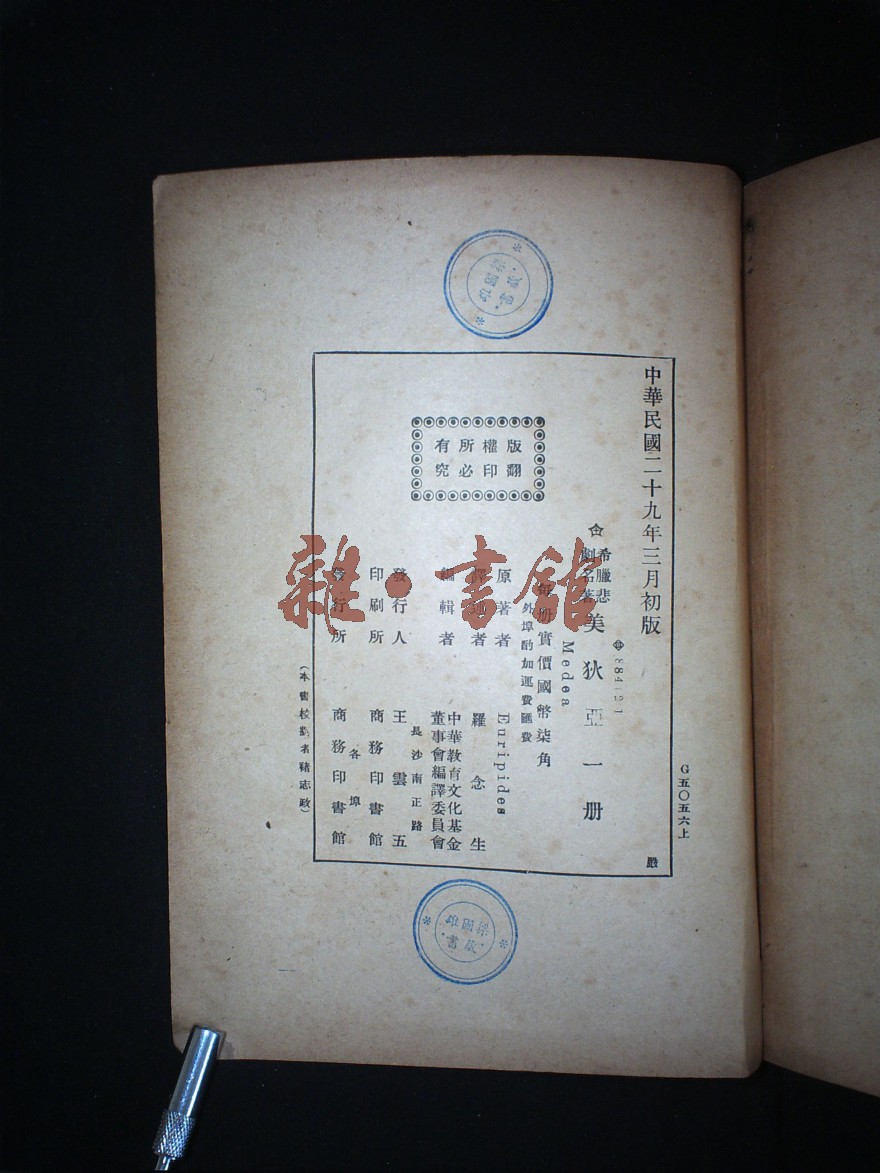 中華民國二十九年三月初版
希臘悲
劇名著
美狄亞一册
Medea
每册實價國幣柒角
外埠酌加運費匯費
原著者 Euripides
譯述者 羅念生
編輯者 中華教育文化基金
董事會編譯委員會
發行人 王雲五
長沙南正路
印刷所 商務印書館
發行所 商務印書館
各埠
版權所有
翻印必究
G五〇五六上
雜·書館